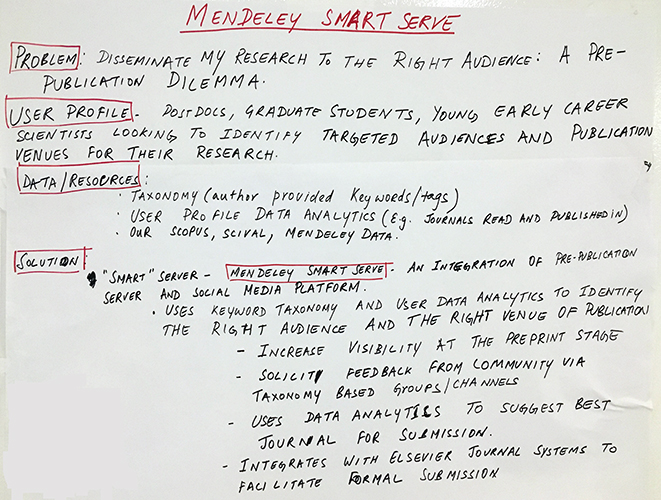 MENDELEY SMART SERVE
PROBLEM: DISSEMINATE MY RESEARCH TO THE RIGHT AUDIENCE: A PRE-
PUBLICATION DILEMMA.
USER PROFILE - POSTDOCS, GRADUATE STUDENTS, YOUNG EARLY CAREER
SCIENTISTS LOOKING TO IDENTIFY TARGETED AUDIENCES AND PUBLICATION
VENUES FOR THEIR RESEARCH.
DATA/RESOURCES:
· TAXONOMY (author provided keywords/tags)
· USER PROFILE DATA ANALYTICS (E.g. JOURNALS READ AND PUBLISHED IN)
· OUR SCOPUS, SCIVAL, MENDELEY DATA.
SOLUTION:
"SMART" SERVER - MENDELEY SMART SERVE - AN INTEGRATION OF PRE-PUBLICATION
SERVER AND SOCIAL MEDIA PLATFORM.
· USES KEYWORD TAXONOMY AND USER DATA ANALYTICS TO IDENTIFY
THE RIGHT AUDIENCE AND THE RIGHT VENUE OF PUBLICATION
- INCREASE VISIBILITY AT THE PREPRINT STAGE
- SOLICIT FEEDBACK FROM COMMUNITY VIA
TAXONOMY BASED GROUPS/CHANNELS
- USES DATA ANALYTICS TO SUGGEST BEST
JOURNAL FOR SUBMISSION.
- INTEGRATES WITH ELSEVIER JOURNAL SYSTEMS TO
FACILITATE FORMAL SUBMISSION